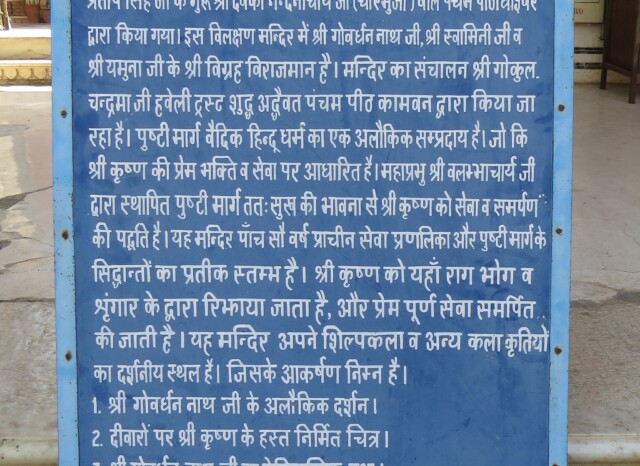 प्रताप सिंह जी के गुरू श्री देवकी नन्दनाचार्य जी (चारभुजा) वाले पंचम पीठाधीश्वर
द्वारा किया गया। इस विलक्षण मन्दिर में श्री गोवर्धन नाथ जी, श्री स्वामिनी जी व
श्री यमुना जी के श्री विग्रह विराजमान है। मन्दिर का संचालन श्री गोकुल.
चन्द्रमा जी हवेली ट्रस्ट शुद्ध अद्वैवत पंचम पीठ कामवन द्वारा किया जा
रहा है। पुष्टी मार्ग वैदिक हिन्दू धर्म का एक अलौकिक सम्प्रदाय है। जो कि
श्री कृष्ण की प्रेम भक्ति व सेवा पर आधारित है। महाप्रभु श्री वलम्भाचार्य जी
द्वारा स्थापित पुष्टी मार्ग ततःसुख की भावना से श्री कृष्ण को सेवा व समर्पण
की पद्वति है। यह मन्दिर पाँच सौ वर्ष प्राचीन सेवा प्रणलिका और पुष्टी मार्ग के
सिद्वान्तों का प्रतीक स्तम्भ है। श्री कृष्ण को यहाँ राग भोग व
श्रृंगार के द्वारा रिझाया जाता है, और प्रेम पूर्ण सेवा समर्पित
की जाती है। यह मन्दिर अपने शिल्पकला व अन्य कला कृतियों
का दर्शनीय स्थल है। जिसके आकर्षण निम्न है।
1. श्री गोवर्धन नाथ जी के अलौकिक दर्शन।
2. दीवारों पर श्री कृष्ण के हस्त निर्मित चित्र।